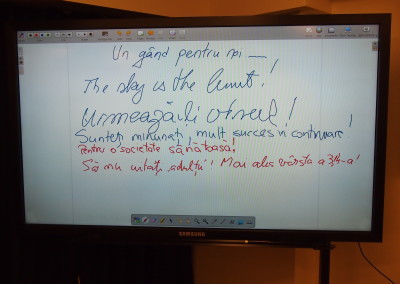 Un gând pentru voi —
The sky is the limit!
Urmează-ți visul!
Sunteți minunați, mult succes în continuare!
Pentru o societate sănătoasă!
Să nu uitați „adulții”! Mai ales vârsta a 3/4-a!
SAMSUNG